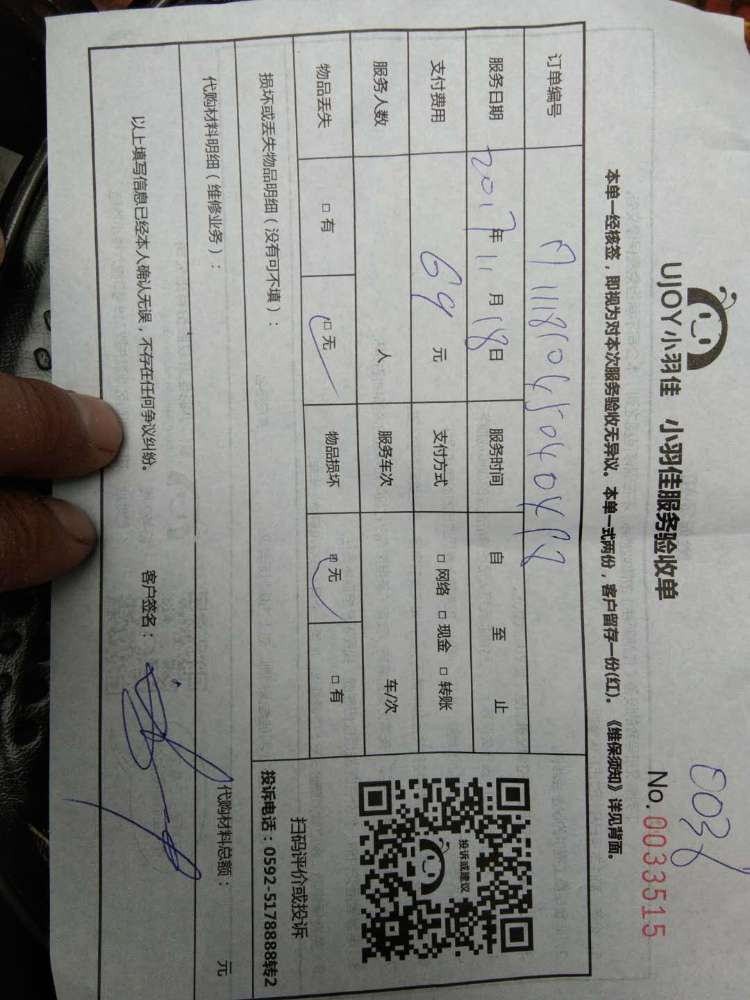 003
UJOY小羽佳 小羽佳服务验收单 No. 0033515
本单一经核签，即视为对本次服务验收无异议。本单一式两份，客户留存一份(红)。《维保须知》详见背面。
订单编号
服务日期 2017年11月18日 服务时间 自 至 止
支付费用 64元 支付方式 □网络 □现金 □转账
服务人数 人 服务车次 车/次
物品丢失 □有 □无 物品损坏 □无 □有
投诉或建议
扫码评价或投诉
投诉电话：0592-5178888转2
损坏或丢失物品明细（没有可不填）：
代购材料明细（维修业务）： 代购材料总额： 元
以上填写信息已经本人确认无误，不存在任何争议纠纷。 客户签名：